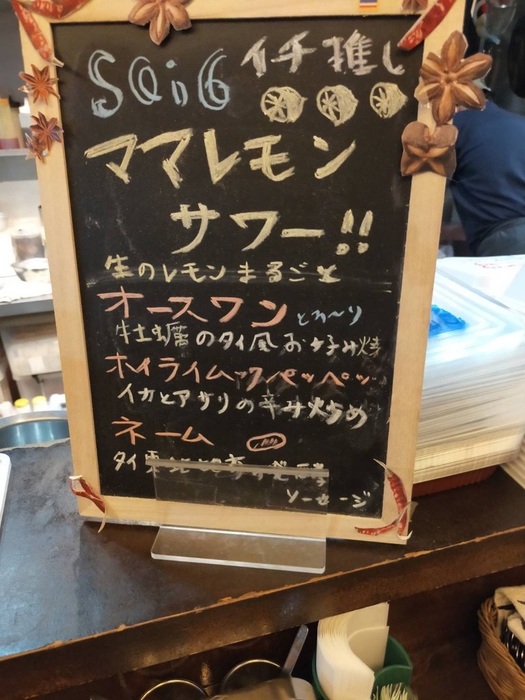 SOiG イチ推し
ママレモン
サワー!!
生のレモン まるごと
オースワン とろ〜り
牡蠣のタイ風お好み焼
ホイライムックペッペッ
イカとアサリの辛み炒め
ネーム
タイ
ソーセージ